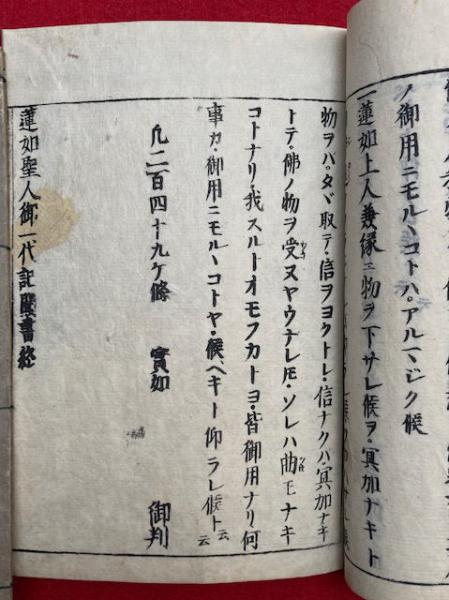 ノ御用ニモルヽコトハ。アルマジク候
一蓮如上人兼縁ニ物ヲ下サレ候ヲ。冥加ナキト
物ヲハ。タヾ取テ。信ヲヨクトレ。信ナクハ。冥加ナキ
トテ。佛ノ物ヲ受ヌヤウナレ𪜈。ソレハ曲モナキ
コトナリ。我スルトオモフカトヨ。皆御用ナリ。何
事カ。御用ニモルヽコトヤ。候ヘキト仰ラレ候ト云云
凡二百四十九ケ條　實如　御判
蓮如聖人御一代記聞書終